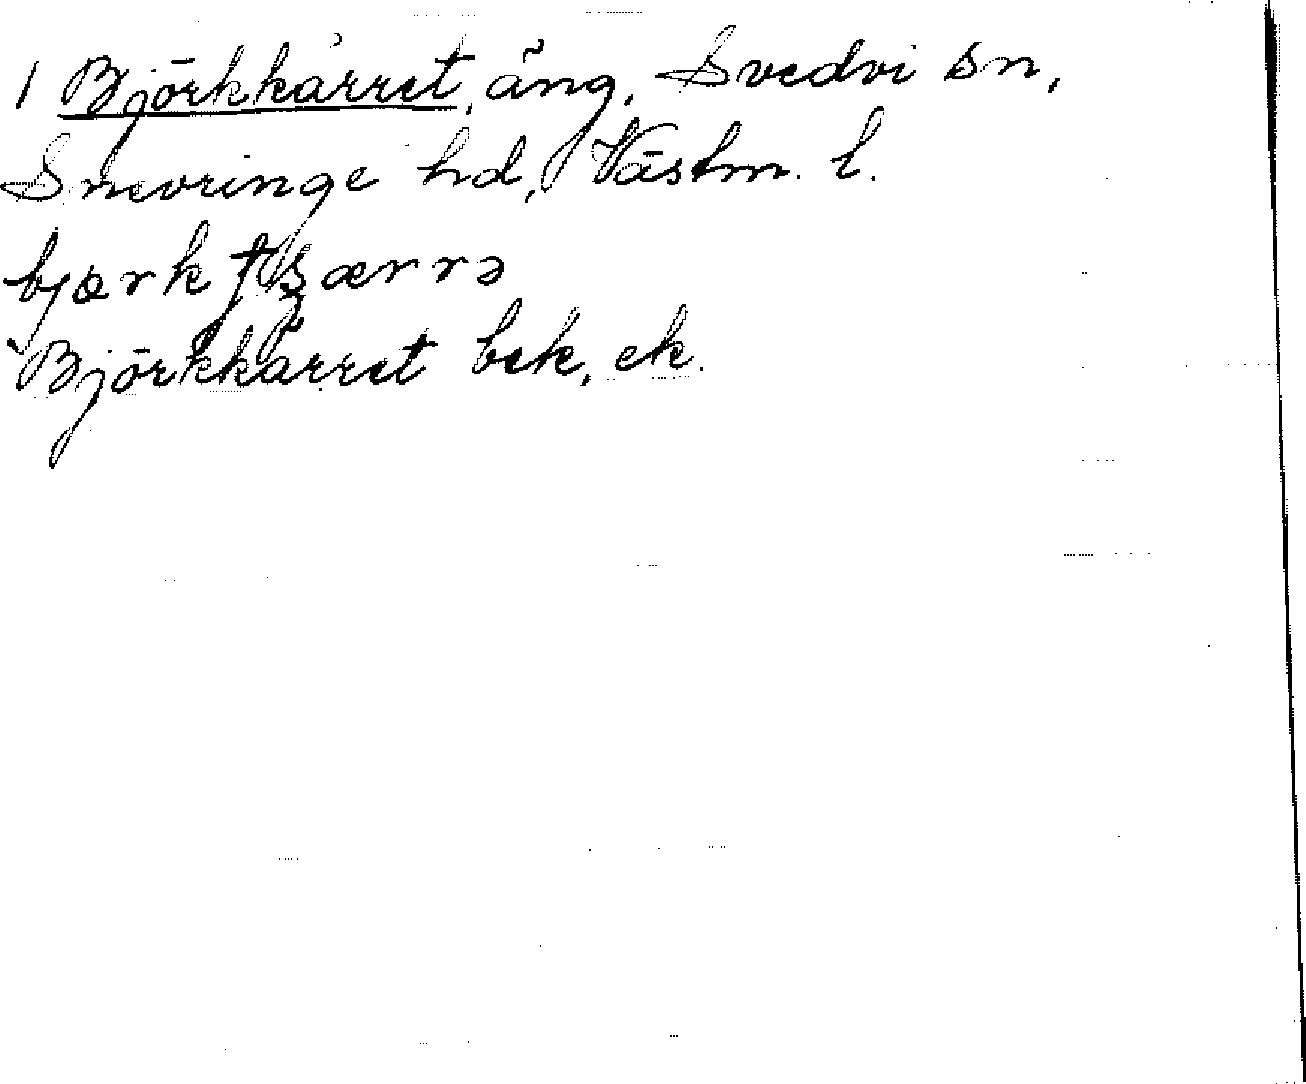 1 Björkkärret, äng, Svedvi sn,
Snevringe hd, Västm. l.
Björkkärret bek, ek.